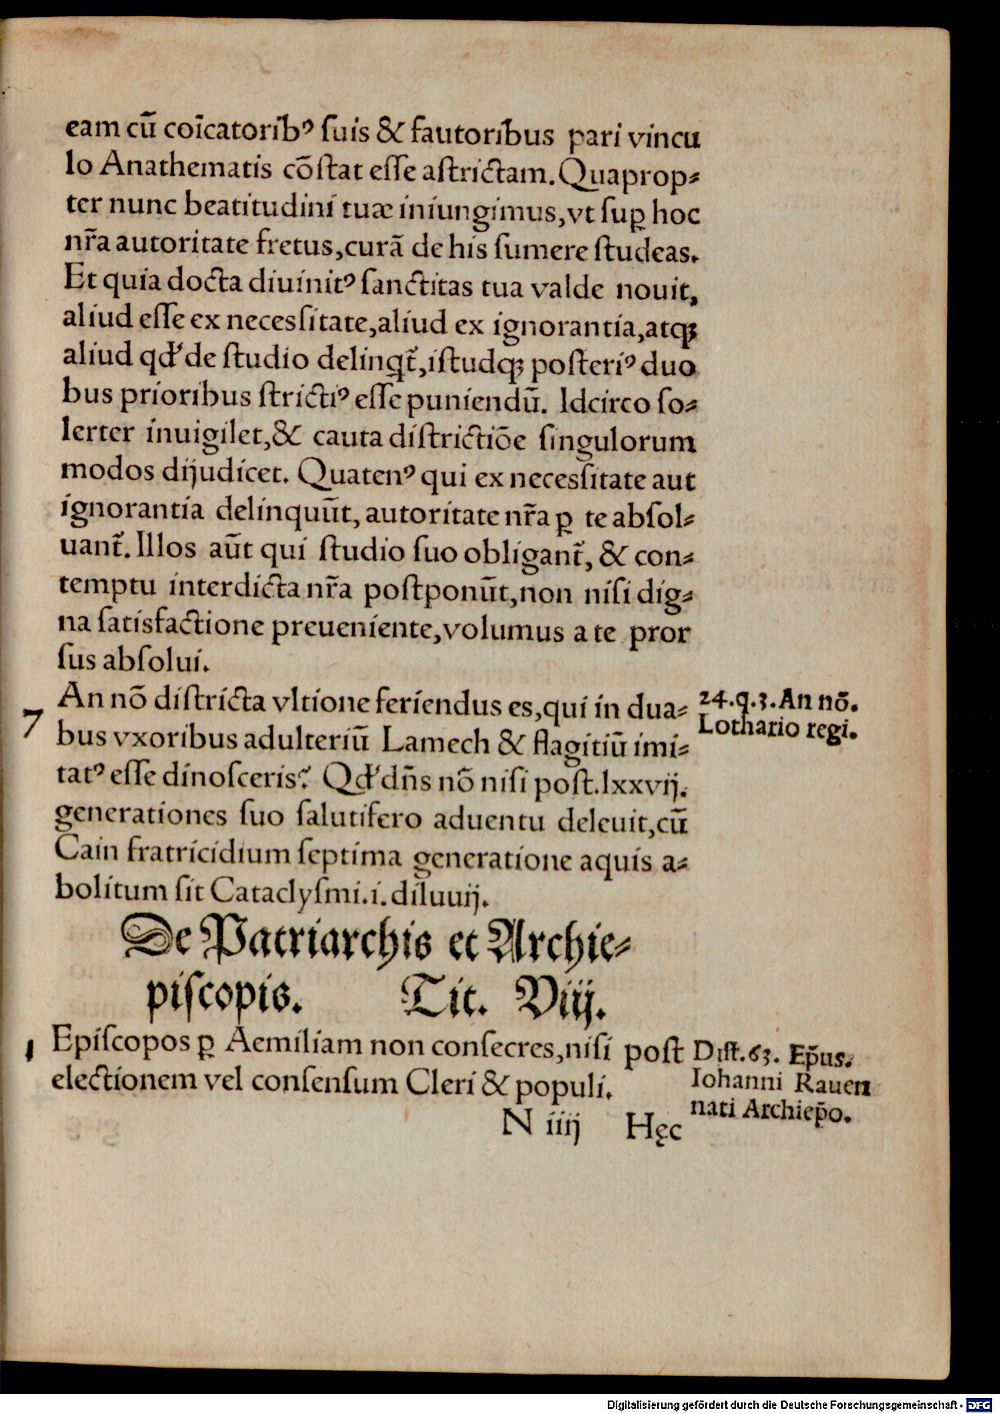 eam cū coīcatoribꝰ ſuis & fautoribus pari vincu
lo Anathematis cōſtat eſſe aſtrictam. Quaprop⸗
ter nunc beatitudini tuæ iniungimus, vt suꝑ hoc
nr̄a autoritate fretus, curā de his ſumere ſtudeas.
Et quia docta diuinitꝰ ſanctitas tua valde nouit,
aliud eſſe ex necesſitate, aliud ex ignorantia, atqꝫ
aliud qd' de ſtudio delinqt̄, iſtudqꝫ poſteriꝰ duo
bus prioribus ſtrictiꝰ eſſe puniendū. Idcirco ſo⸗
lerter inuigilet, & cauta diſtrictiōe singulorum
modos dijudicet. Quatenꝰ qui ex necesſitate aut
ignorantia delinquūt, autoritate nr̄a ꝑ te abſol⸗
uant̄. Illos aūt qui ſtudio ſuo obligant̄, & con⸗
temptu interdicta nr̄a poſtponūt, non niſi dig⸗
na ſatisfactione preueniente, volumus a te pror
ſus abſolui.
7 An nō diſtricta vltione feriendus es, qui in dua⸗
bus vxoribus adulteriū Lamech & flagitiū imi⸗
tatꝰ eſſe dinoſceris? Qd' dn̄s nō niſi poſt. lxxvij.
generationes ſuo ſalutifero aduentu deleuit, cū
Cain fratricidium ſeptima generatione aquis a⸗
bolitum ſit Cataclyſmi. i. diluuij.
24. q. 3. An nō.
Lothario regi.
De Patriarchis et Archie⸗
piſcopis. Tit. Viij.
1 Epiſcopos ꝑ Aemiliam non conſecres, niſi poſt
electionem vel conſenſum Cleri & populi.
Diſt. 63. Ep̄us.
Iohanni Rauen
nati Archiep̄o.
N iiij Hęc
Digitalisierung gefördert durch die Deutsche Forschungsgemeinschaft - DFG